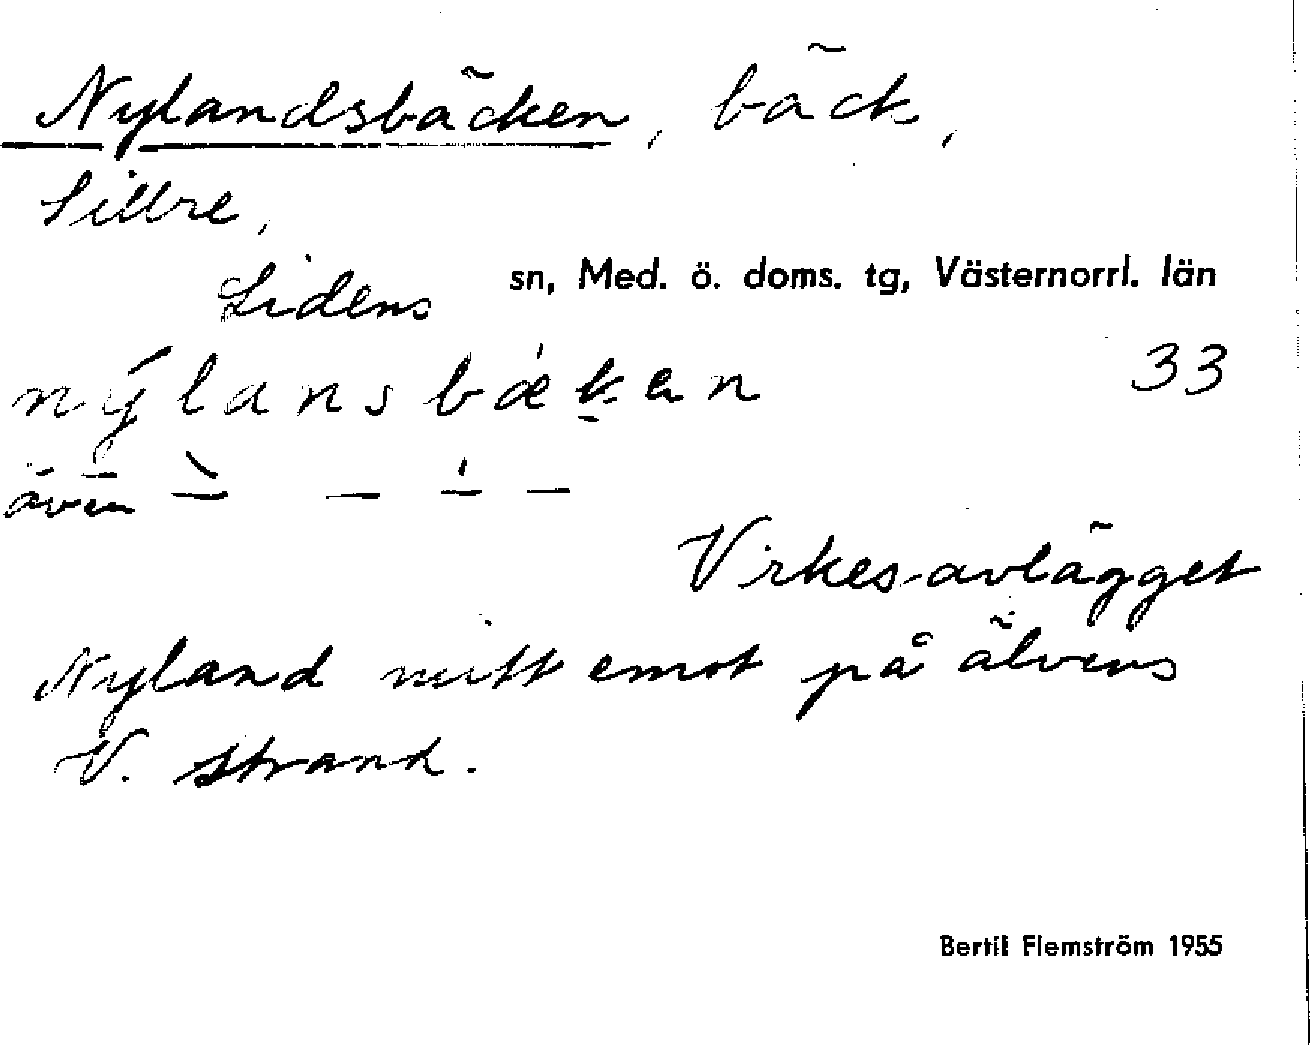 Nylandsbäcken, bäck,
Sillre,
Lidens sn, Med. ö. doms. tg, Västernorrl. län
nýlansbǽk̠en 33
även
Virkesavlägget
Nyland mitt emot på älvens
V. strand.
Bertil Flemström 1955